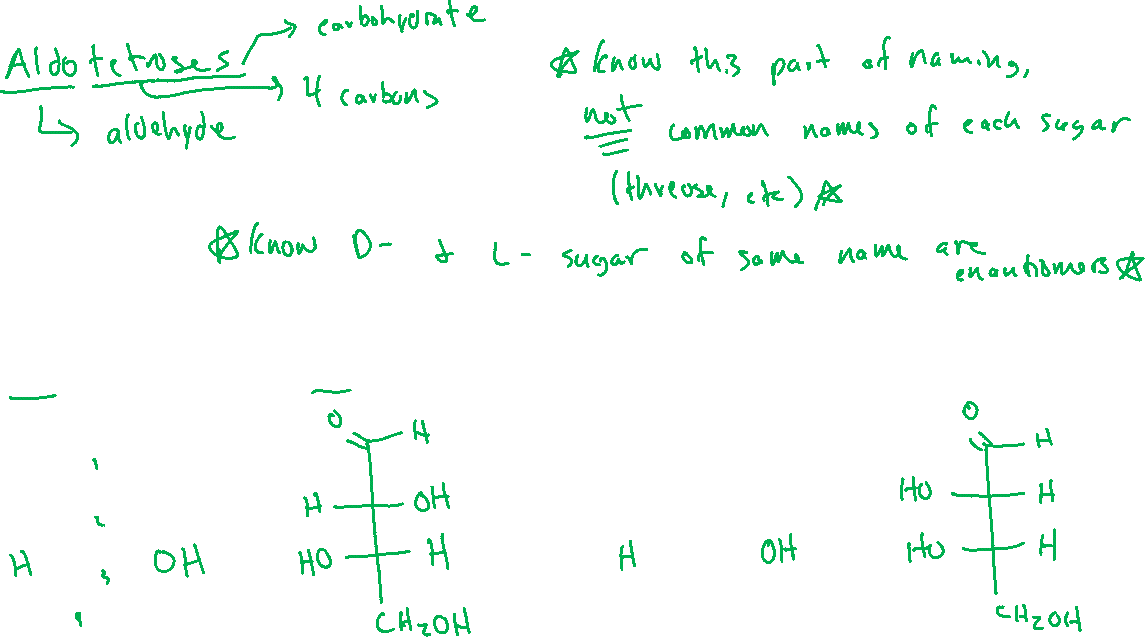 → carbohydrate
Aldotetroses
→ 4 carbons
↳ aldehyde
☆ know this part of naming,
not common names of each sugar
(threose, etc) ☆
☆ know D- & L- sugar of same name are enantiomers ☆
O H
H OH
HO H
CH2OH
1
2
H 3 OH
4
H OH
O H
HO H
HO H
CH2OH